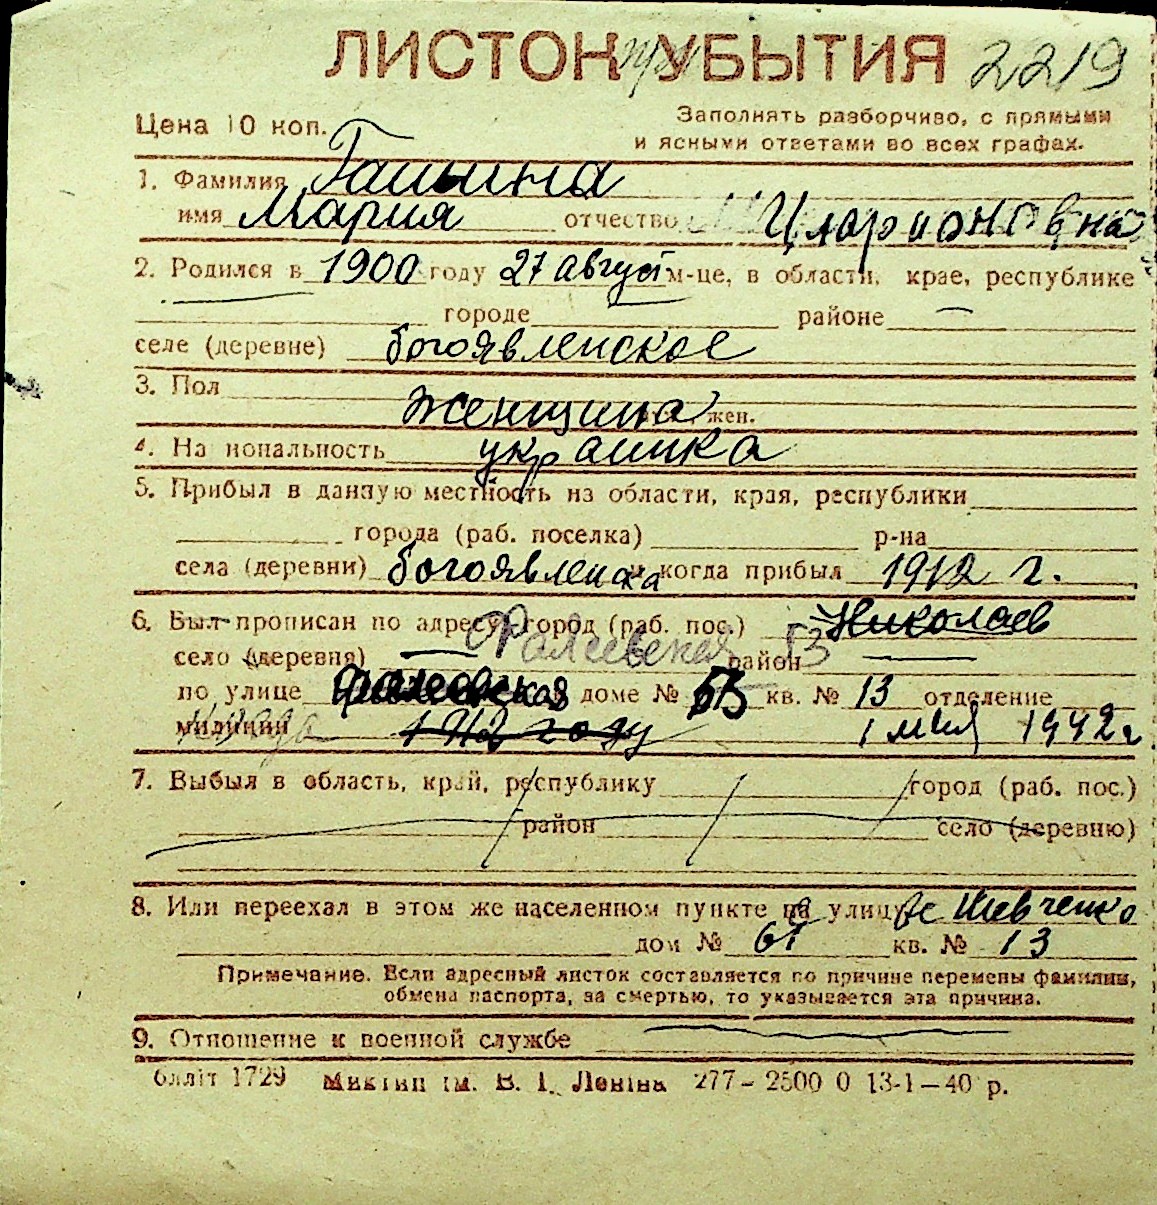 ЛИСТОК УБЫТИЯ 2219
Цена 10 коп.
Заполнять разборчиво, с прямыми
и ясными ответами во всех графах.
1. Фамилия Ганына
имя Мария отчество Иларионовна
2. Родился в 1900 году 27 август м-це, в области, крае, республике
городе районе —
селе (деревне) богоявленское
3. Пол женщина жен.
4. На иональность украинка
5. Прибыл в данную местность из области, края, республики
города (раб. поселка) р-на
села (деревни) богоявленска и когда прибыл 1912 г.
6. Был прописан по адресу: город (раб. пос.) Николаев
село (деревня) — Фалеевская 53 район —
по улице Фалеевская доме № 53 кв. № 13 отделение
милиции 1942 году 1 мая 1942 г
7. Выбыл в область, край, республику город (раб. пос.)
район село (деревню)
8. Или переехал в этом же населенном пункте на улицу Шевченко
дом № 61 кв. № 13
Примечание. Если адресный листок составляется по причине перемены фамилии,
обмена паспорта, за смертью, то указывается эта причина.
9. Отношение к военной службе
блліт 1729 Миктип ім. В. І. Леніна 277-2500 0 13-1-40 р.